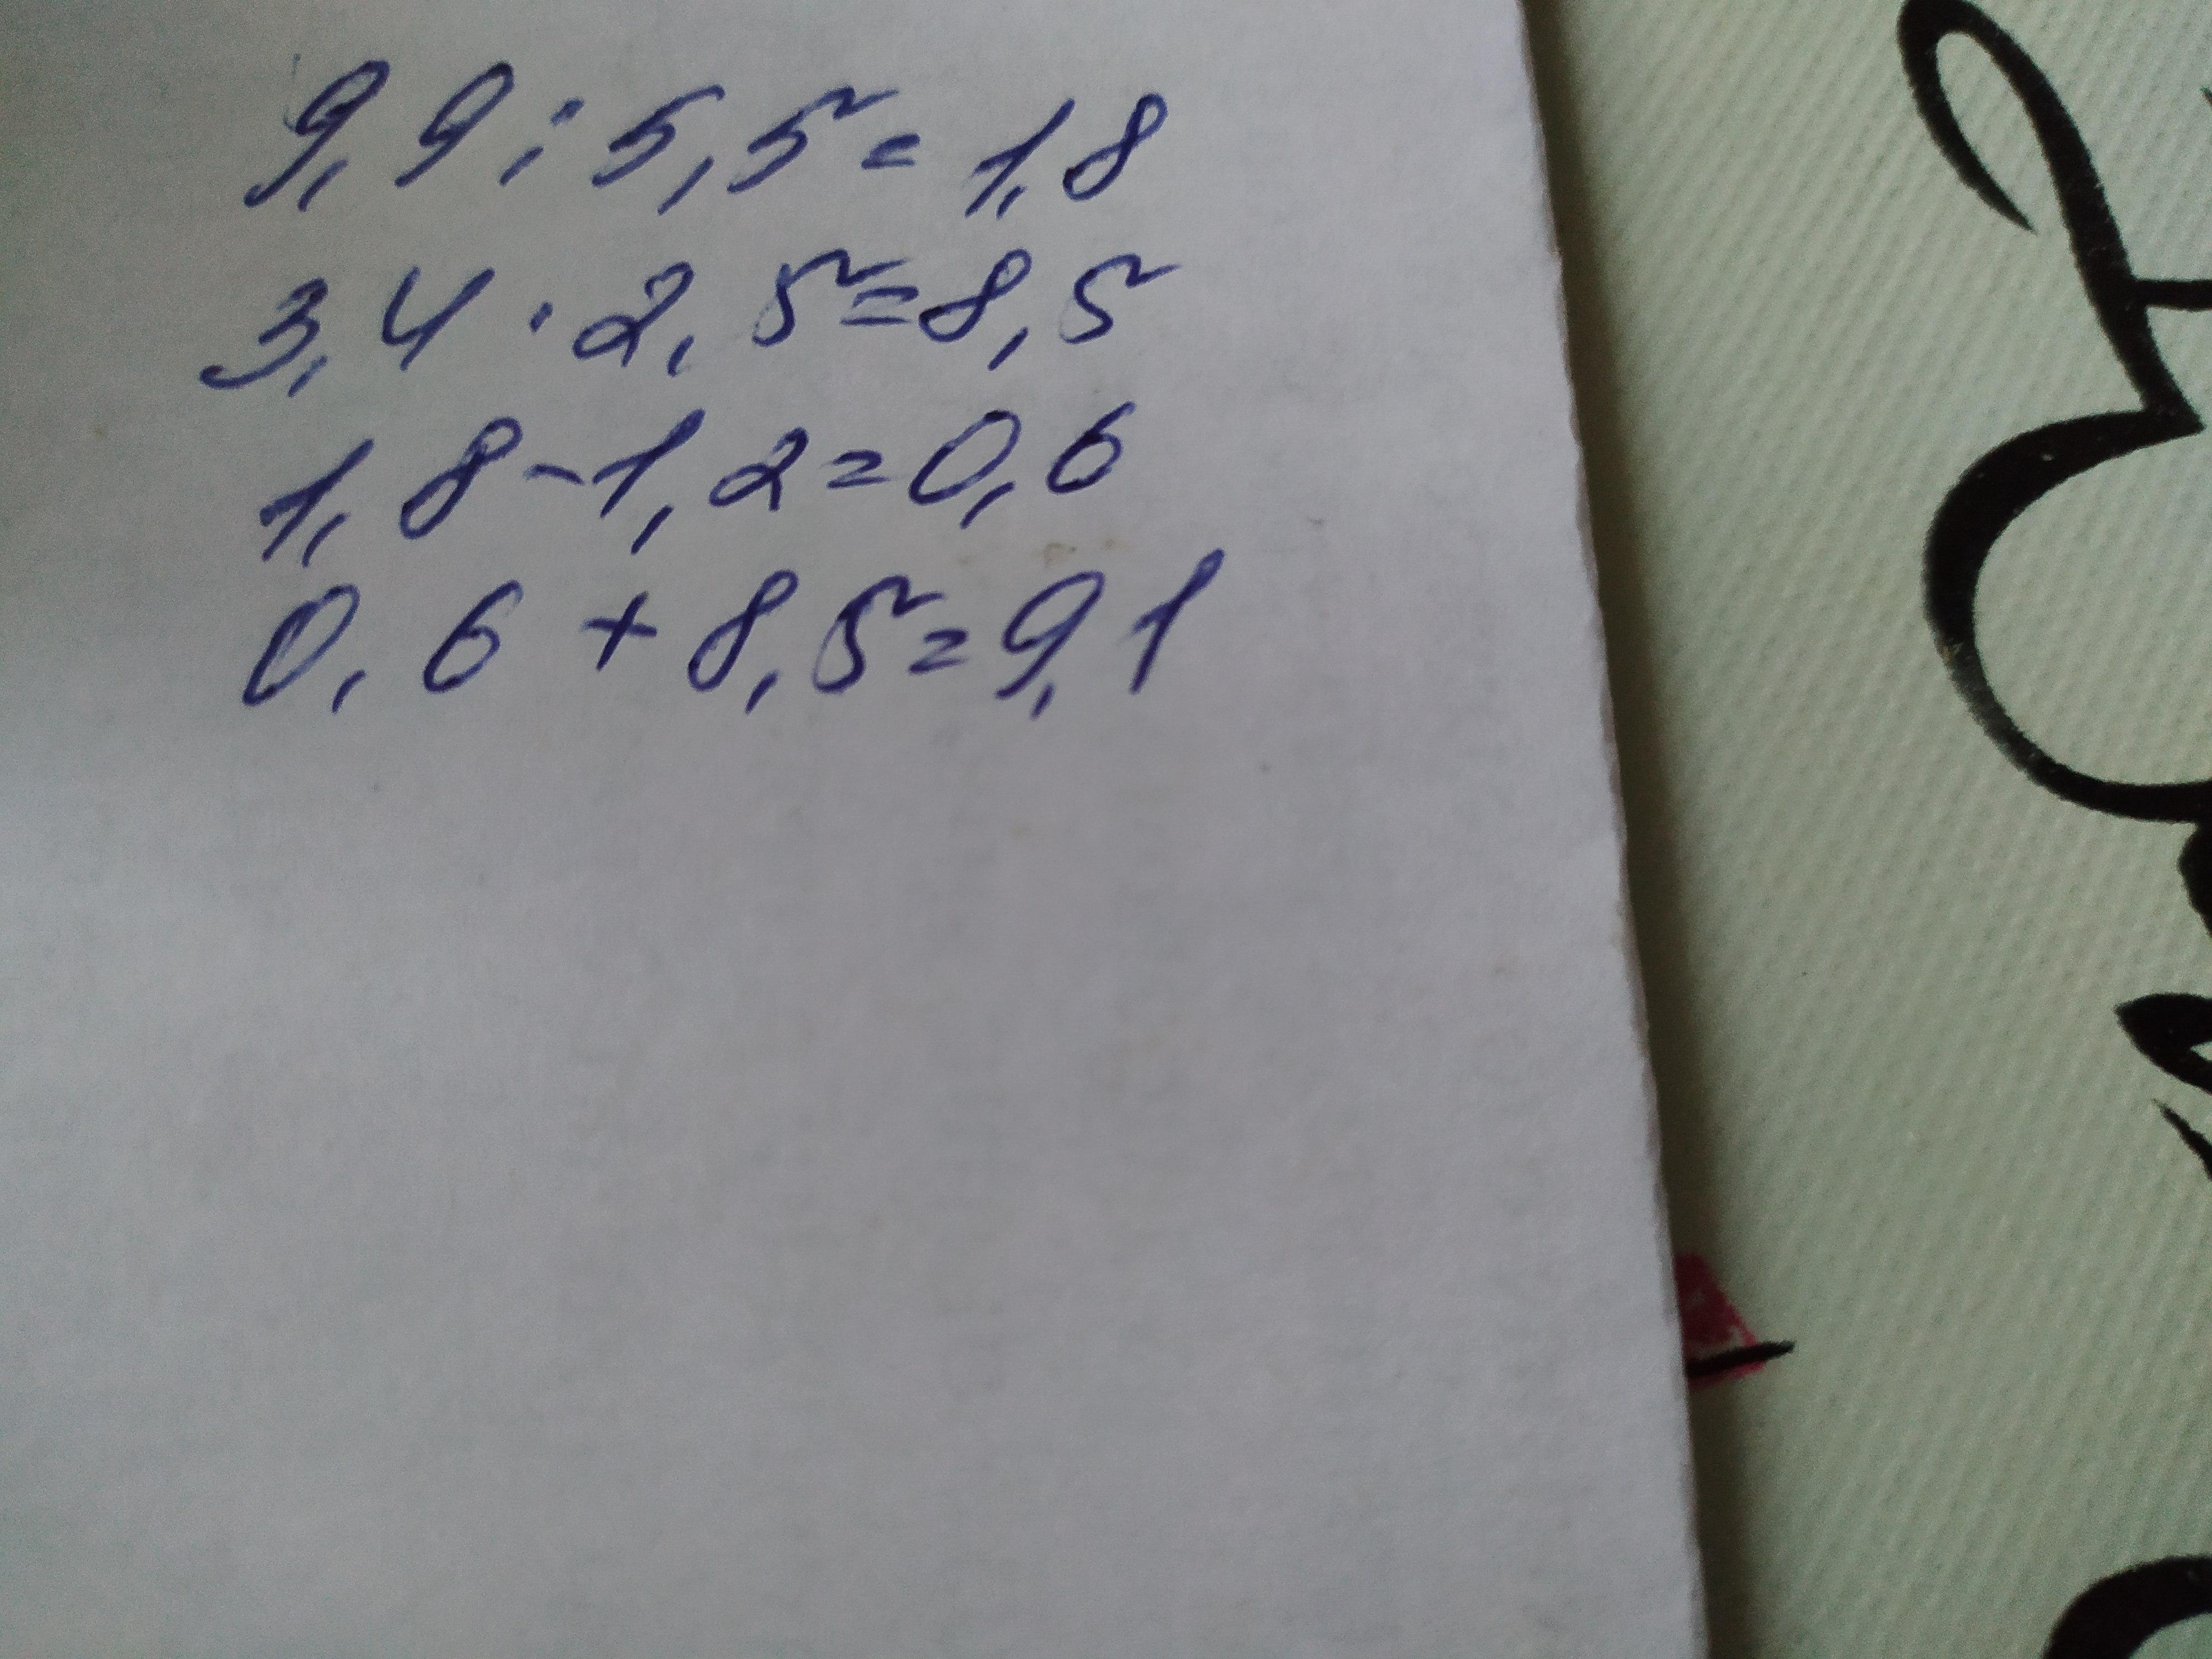 9,9 : 5,5 = 1,8
3,4 · 2,5 = 8,5
1,8 - 1,2 = 0,6
0,6 + 8,5 = 9,1